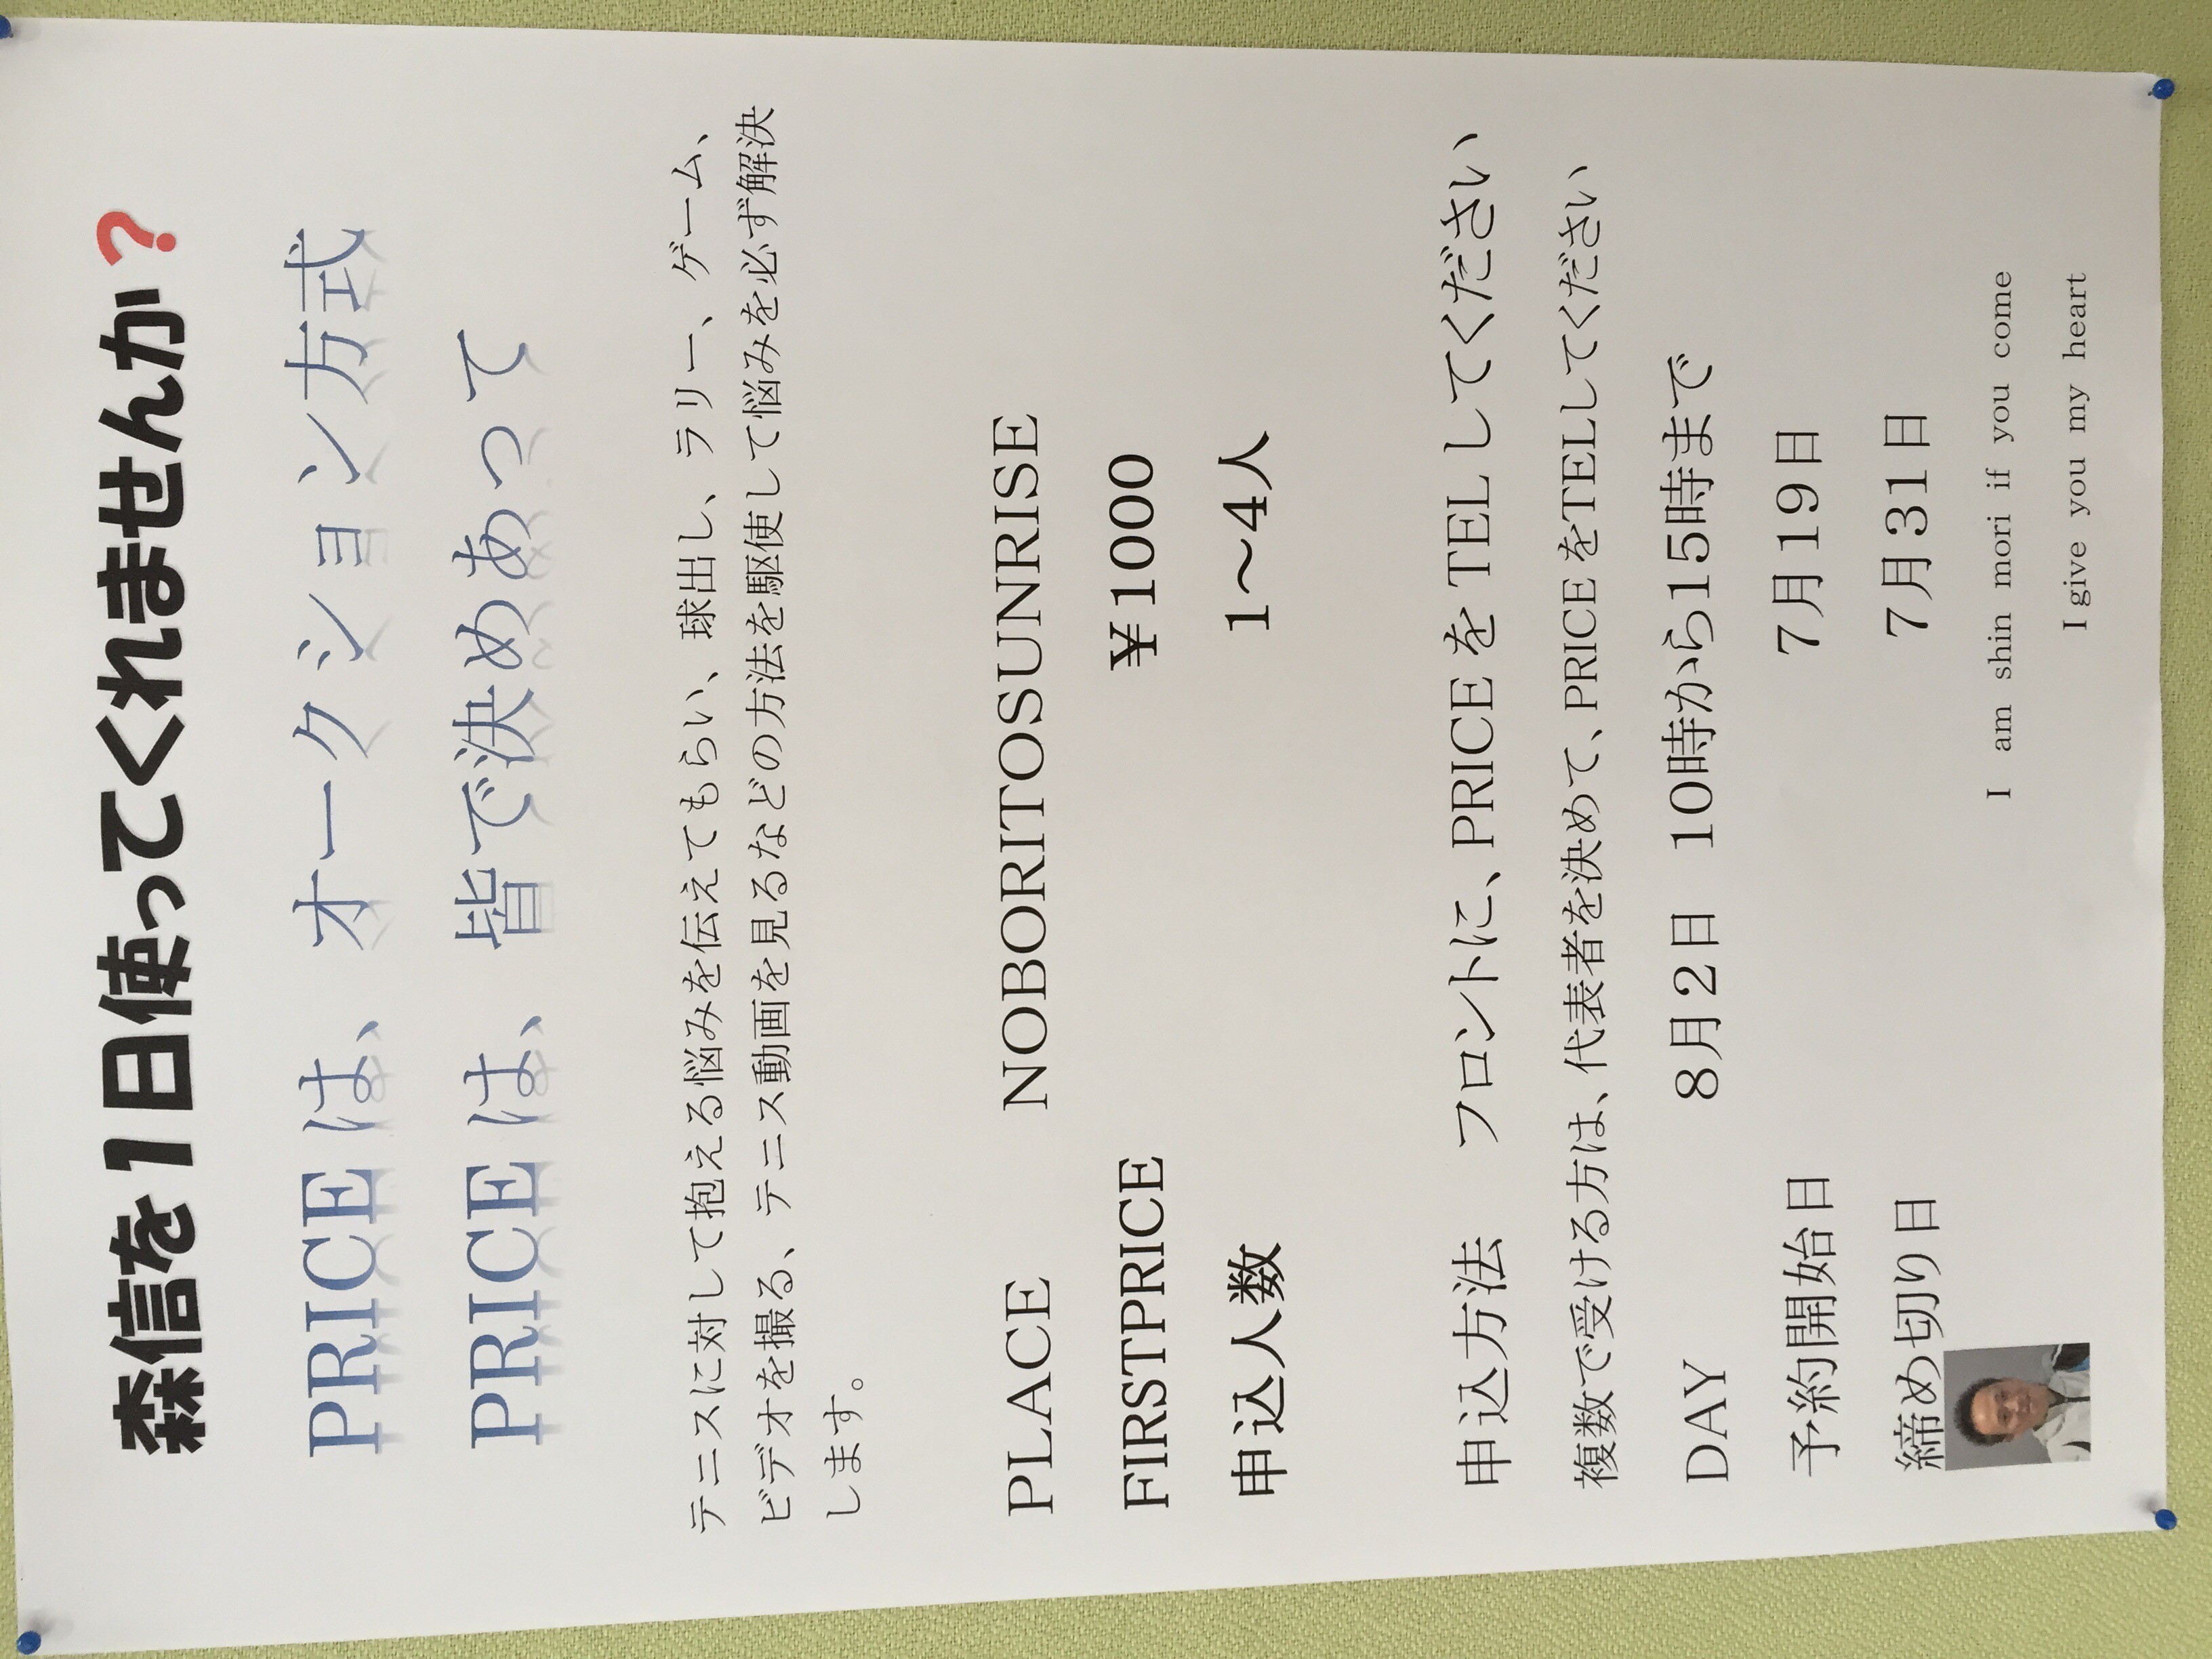 森信を1日使ってくれませんか?
PRICE は、オークション方式
PRICE は、皆で決めあって
テニスに対して抱える悩みを伝えてもらい、球出し、ラリー、ゲーム、
ビデオを撮る、テニス動画を見るなどの方法を駆使して悩みを必ず解決
します。
PLACE NOBORITOSUNRISE
FIRSTPRICE ¥1000
申込人数 1〜4人
申込方法 フロントに、PRICE を TEL してください
複数で受ける方は、代表者を決めて、PRICE をTELLしてください
DAY 8月2日 10時から15時まで
予約開始日 7月19日
締め切り日 7月31日
I am shin mori if you come
I give you my heart